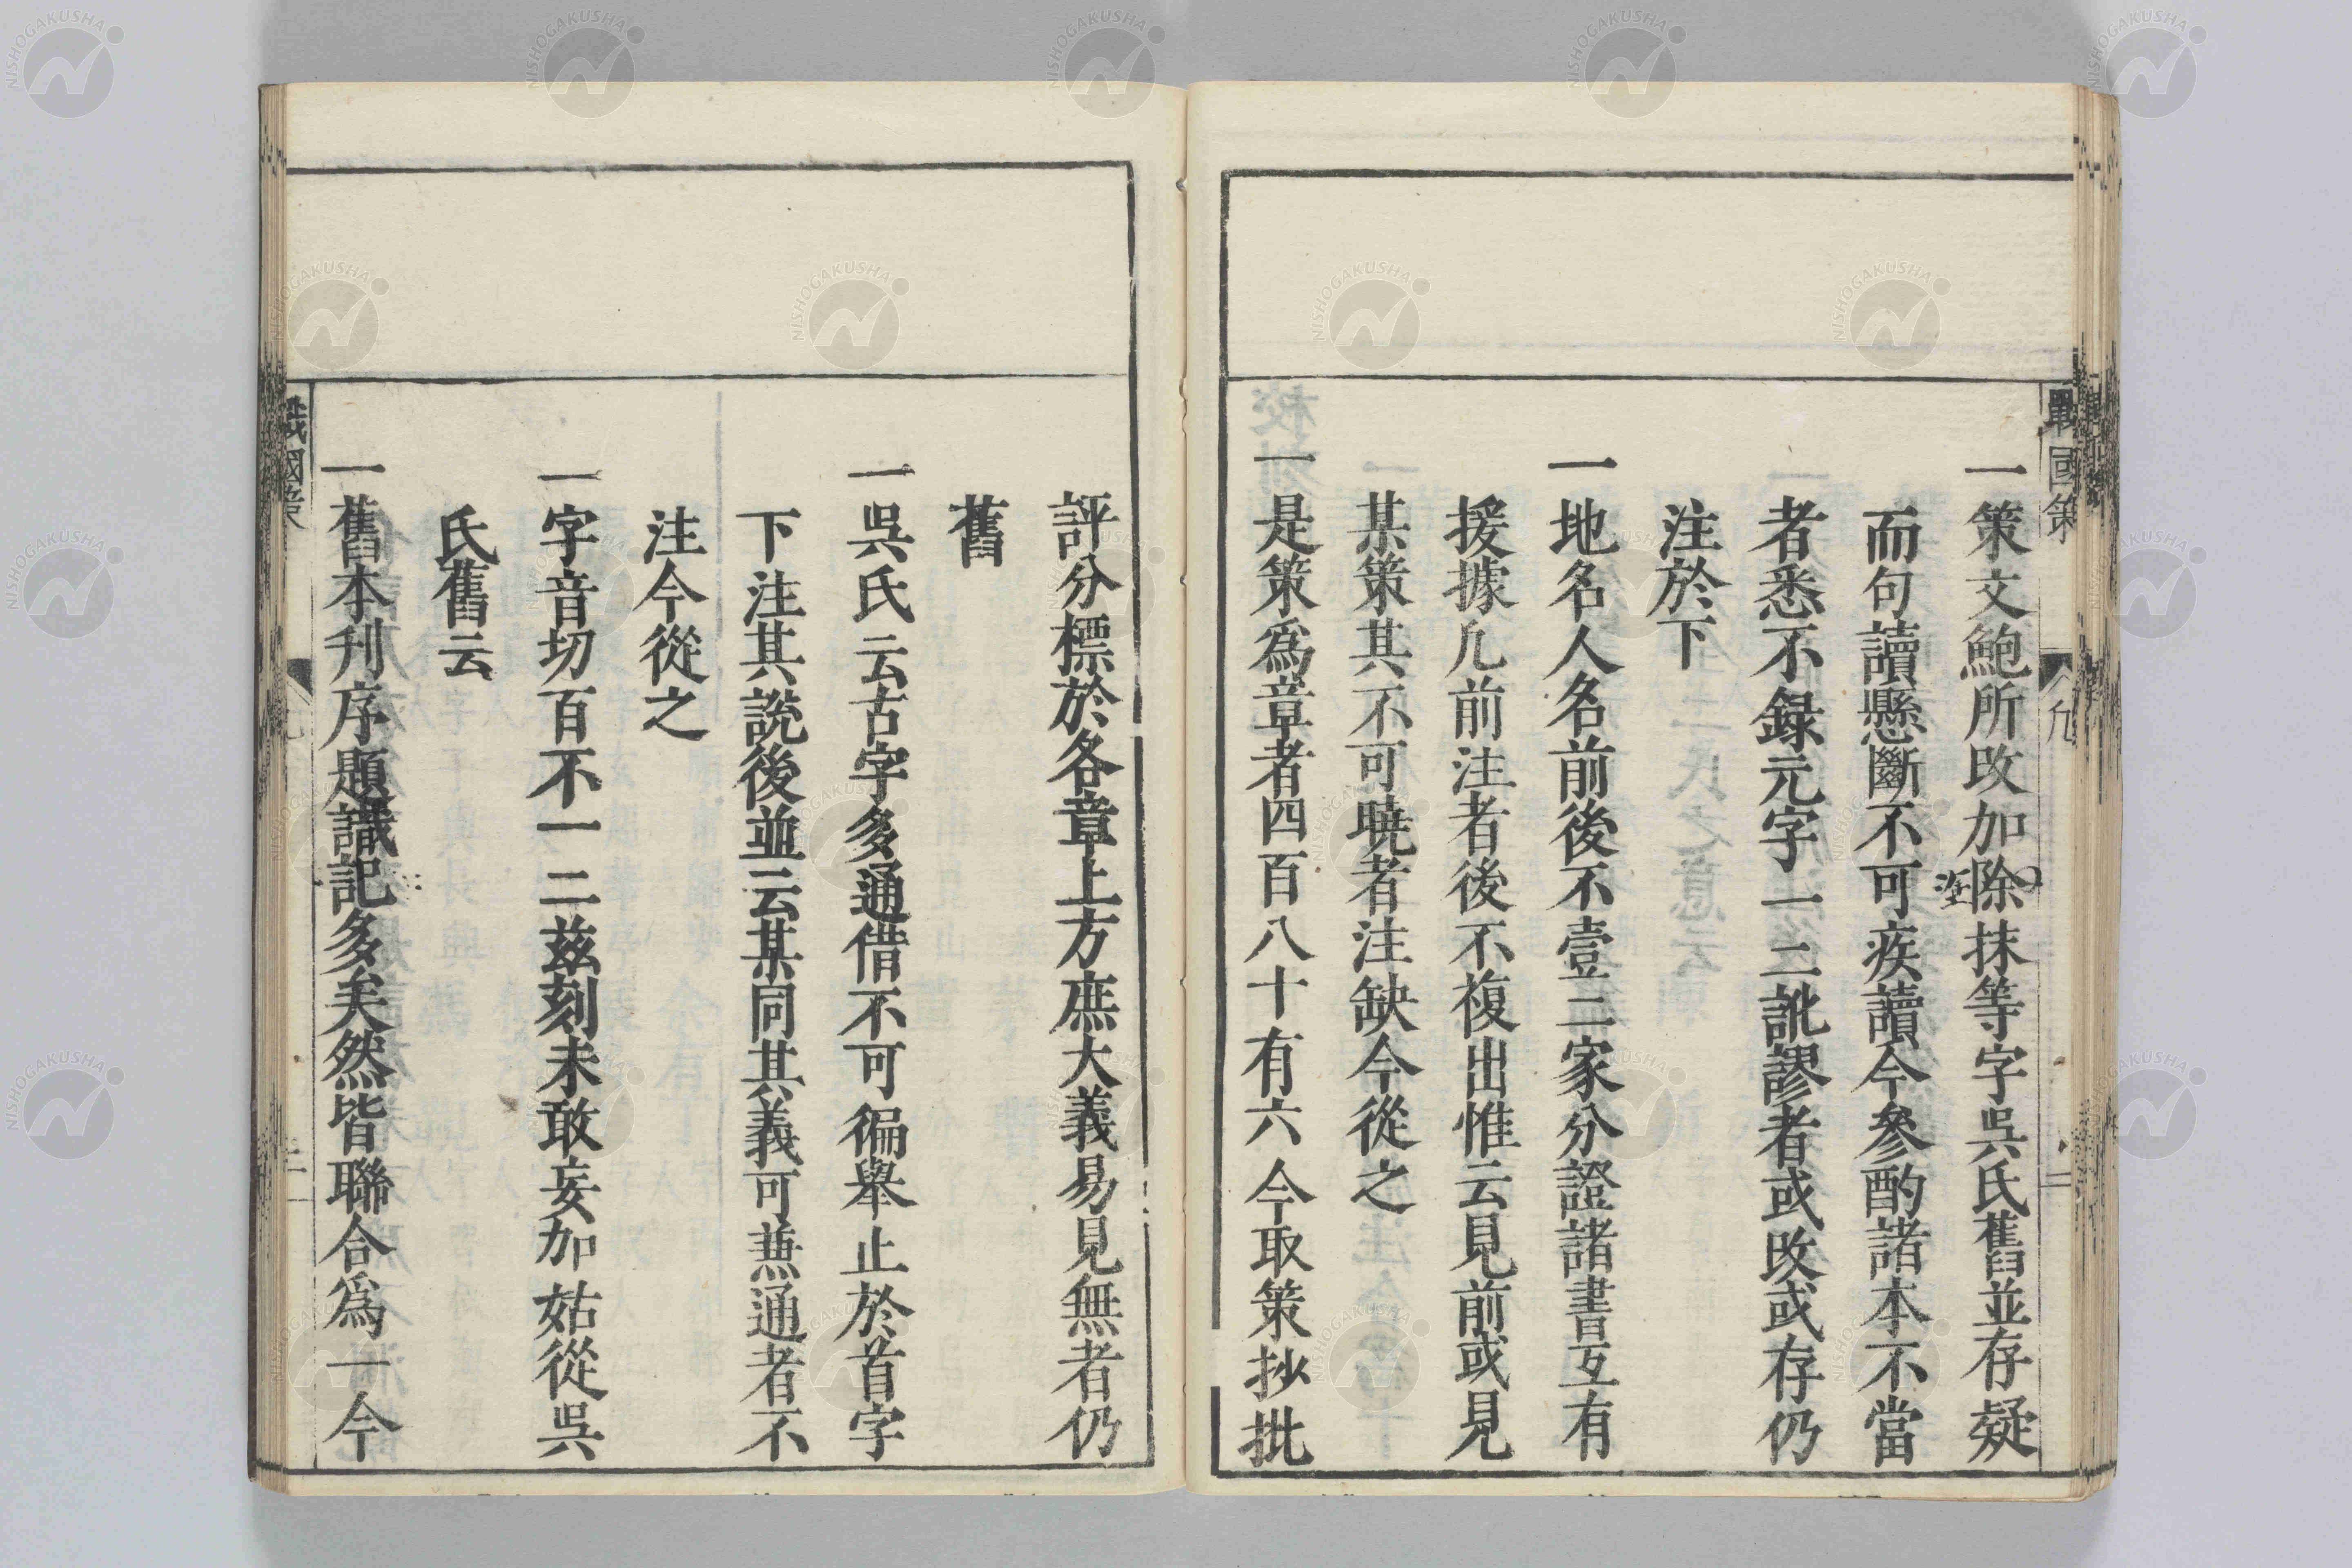 戰國策
凡
二
一策文鮑所改加除抹等字吳氏舊並存疑
塗
而句讀懸斷不可疾讀今參酌諸本不當
者悉不録元字一二訛謬者或改或存仍
注於下
一地名人名前後不壹二家分證諸書互有
援據凡前注者後不複出惟云見前或見
某策其不可曉者注缺今從之
一是策爲章者四百八十有六今取策抄批
評分標於各章上方庶大義易見無者仍
舊
一吳氏云古字多通借不可徧舉止於首字
下注其說後並云某同其義可兼通者不
注今從之
一字音切百不一二茲刻未敢妄加姑從吳
氏舊云
一舊本刊序題識記多矣然皆聯合爲一今
戰國策
NISHOGAKUSHA